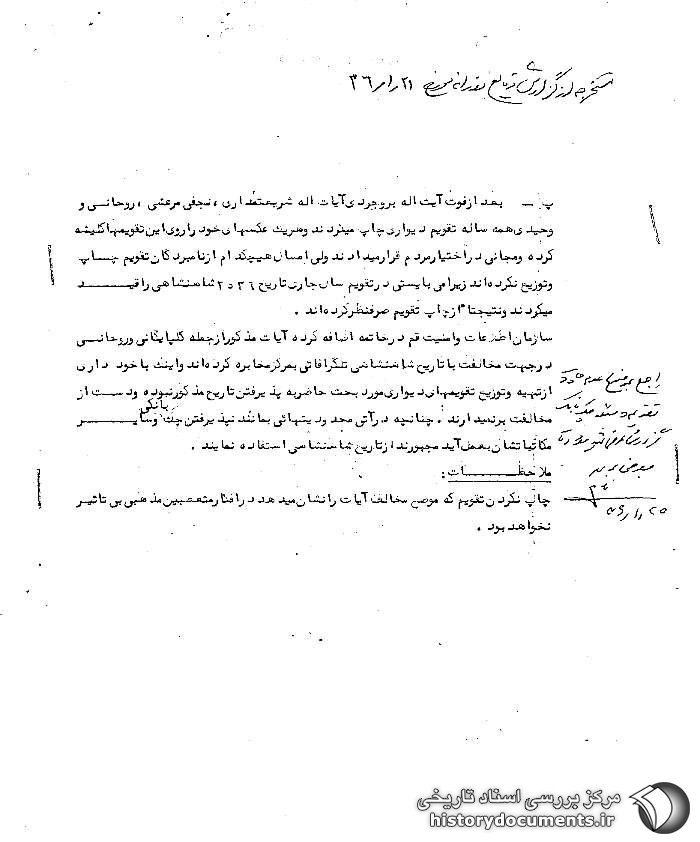 مستخرجه از گزارش وقایع روزانه مورخ ۲۱ر۱ر۳٦
پ ـ بعد از فوت آیت اله بروجردی آیات اله شریعتمداری ، نجفی مرعشی ، روحانی و
وحیدی همه ساله تقویم دیواری چاپ میکردند و هریك عکسهای خود را روی این تقویمها کلیشه
کرده و مجانی در اختیار مردم قرار میدادند ولی امسال هیچکدام از نامبردگان تقویم چاپ
و توزیع نکرده اند زیرا می بایستی در تقویم سال جاری تاریخ ۲۵۳٦ شاهنشاهی را قید
میکردند و نتیجتا" از چاپ تقویم صرفنظر کرده اند .
سازمان اطلاعات و امنیت قم در خاتمه اضافه کرده آیات مذکور از جمله گلپایگانی و روحانی
در جهت مخالفت با تاریخ شاهنشاهی تلگرافاتی بمرکز مخابره کرده اند و اینك با خود داری
از تهیه و توزیع تقویمهای دیواری مورد بحث حاضر به پذیرفتن تاریخ مذکور نبوده و دست از
مخالفت برنمیدارند . چنانچه در آتی محدودیتهائی بمانند نپذیرفتن چك بانکی و سایر
مکاتباتشان بعمل آید مجبورند از تاریخ شاهنشاهی استفاده نمایند .
ملاحظات :
چاپ نکردن تقویم که موضع مخالف آیات را نشان میدهد در افکار متعصبین مذهبی بی تاثیر
نخواهد بود .
راجع
تقویم
گزارش
۲۵ر۱ر۳٦
مرکز بررسی اسناد تاریخی
historydocuments.ir